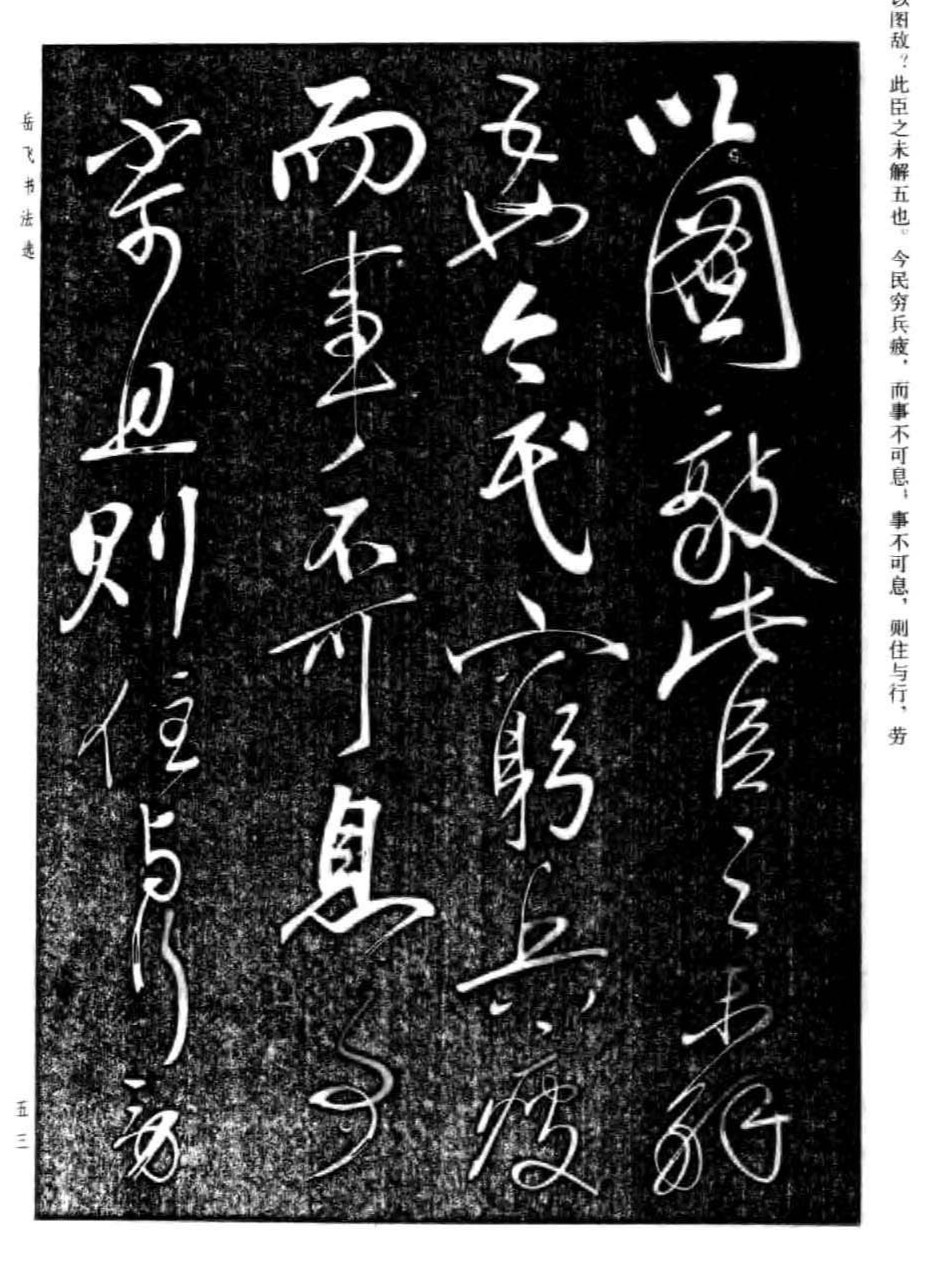 图敌？此臣之未解五也。今民穷兵疲，而事不可息；事不可息，则住与行，劳
以圖敵此臣之未解
五也今民窮兵疲
而事不可息事
不可息則住与行勞
岳飞书法选
五三